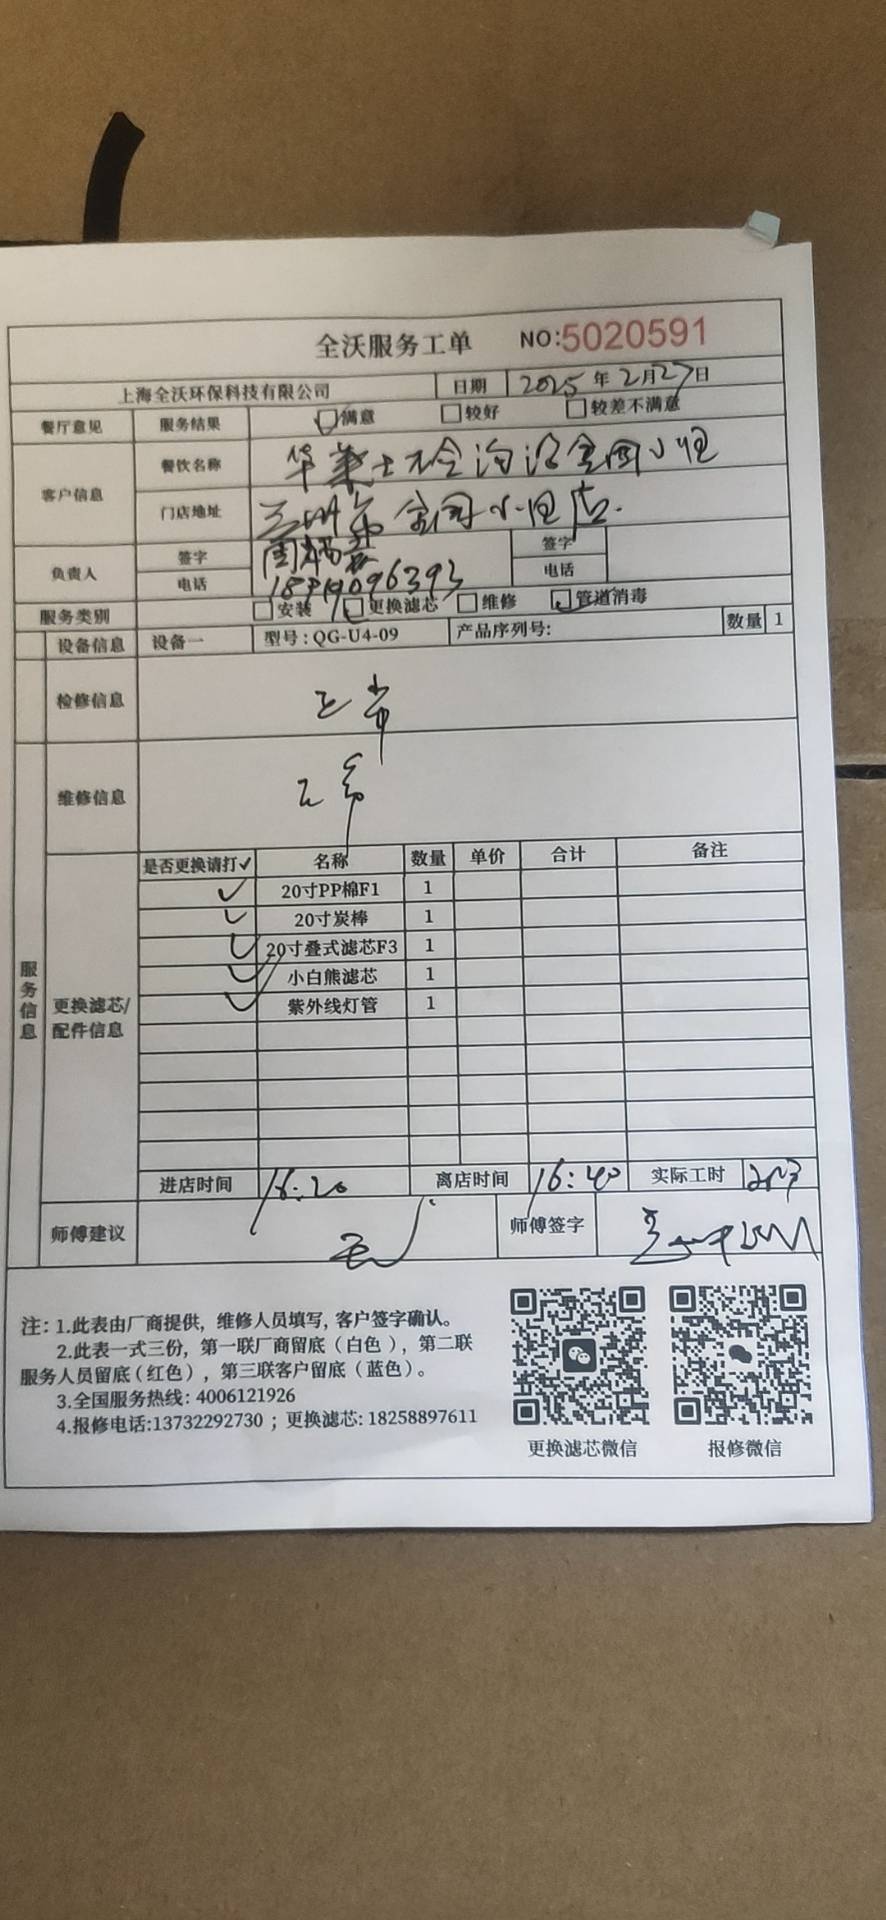 全沃服务工单 NO:5020591
上海全沃环保科技有限公司 日期 2025年2月27日
餐厅意见 服务结果 满意 较好 较差不满意
客户信息 餐饮名称 华莱士
门店地址 兰州市 店.
负责人 签字 周 签字
电话 电话
服务类别 安装 更换滤芯 维修 管道消毒
设备信息 设备一 型号：QG-U4-09 产品序列号: 数量 1
检修信息 正常
维修信息 正常
服务信息
更换滤芯/配件信息
是否更换请打✓ 名称 数量 单价 合计 备注
✓ 20寸PP棉F1 1
✓ 20寸炭棒 1
✓ 20寸叠式滤芯F3 1
✓ 小白熊滤芯 1
✓ 紫外线灯管 1
进店时间 16:20 离店时间 16:40 实际工时
师傅建议 师傅签字
注: 1.此表由厂商提供, 维修人员填写, 客户签字确认。
2.此表一式三份, 第一联厂商留底（白色）, 第二联
服务人员留底（红色）, 第三联客户留底（蓝色）。
3.全国服务热线: 4006121926
4.报修电话:13732292730 ; 更换滤芯: 18258897611
更换滤芯微信 报修微信